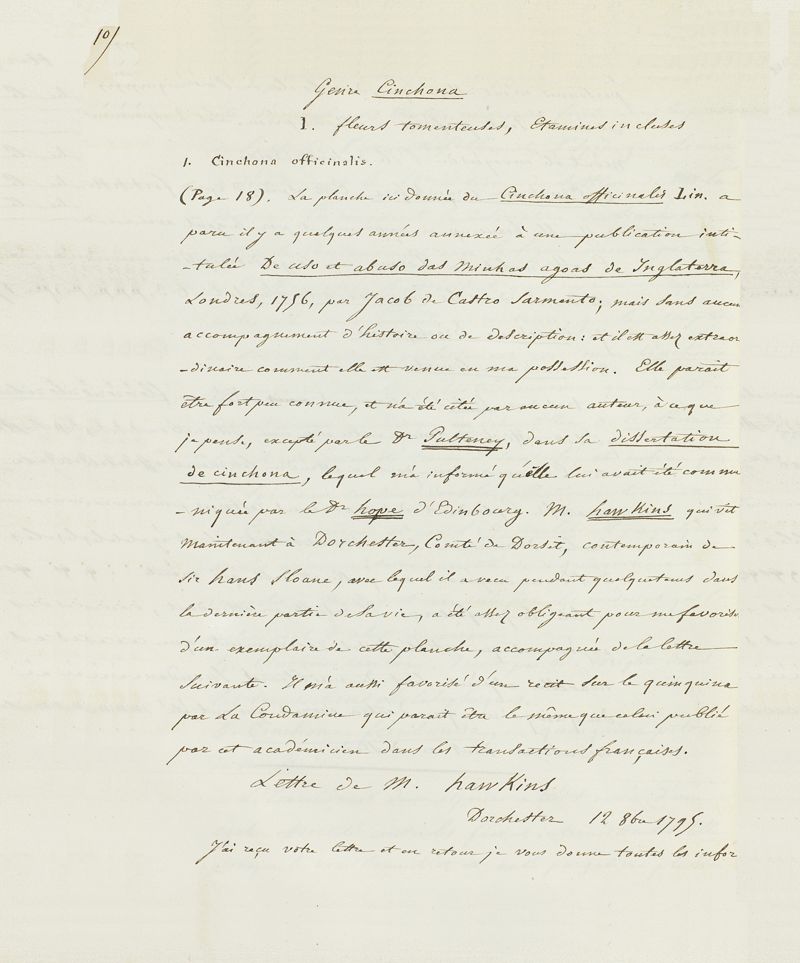 10/
Genre Cinchona
1. fleurs tomenteuses, Etamines incluses
1. Cinchona officinalis.
(Page 18). La planche ici donnée du Cinchona officinalis Lin. a
paru il y a quelques années annexée à une publication inti-
-tulée De uso et abuso das Minhas agoas de Inglaterra,
Londres, 1756, par Jacob de Castro Sarmento; mais sans aucun
accompagnement d'histoire ou de description: et il est assez extraor
-dinaire comment elle est venue en ma possession. Elle parait
être fort peu connue, et n'a été citée par aucun auteur, à ce que
je pense, excepté par le Dr Pulteney, dans sa dissertation
de cinchona, lequel m'a informé qu'elle lui avait été commu
-niquée par le Dr hope d'Edinbourg. M. hawkins qui vit
Maintenant à Dorchester, Comté de Dorset, contemporain de
Sir hans Sloane, avec lequel il a vecu pendant quelquetems dans
la dernière partie de sa vie, a été assez obligeant pour me favoriser
d'un exemplaire de cette planche, accompagnée de la lettre
Suivante. Il m'a aussi favorisé d'un recit sur le quinquina
par La Condamine qui parait être le même que celui publié
par cet académicien dans les transactions françaises.
Lettre de M. hawkins
Dorchester 12 8bre 1795.
J'ai reçu votre lettre et en retour je vous donne toutes les infor